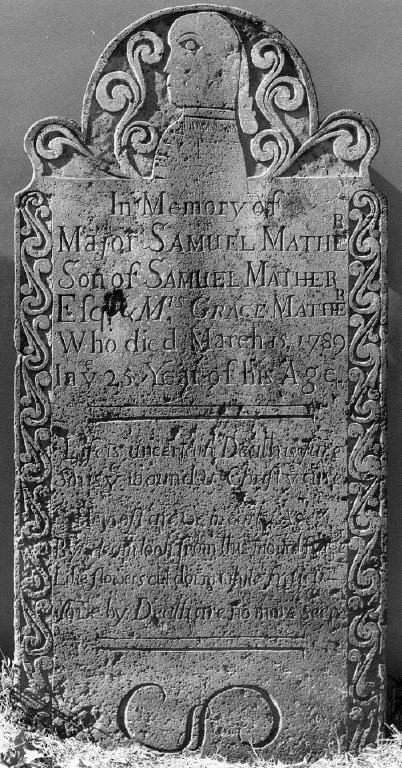 In Memory of
Major SAMUEL MATHER
Son of SAMUEL MATHER
Esqr & Mrs GRACE MATHER
Who died March 15, 1789
In ye 25 Year of his Age
Life is uncertain Death is sure
Sin ye wound & Christ ye cure
oft are we
By death took from this mortal stage
Like flowers cut down while fresh &
by Death are no more seen